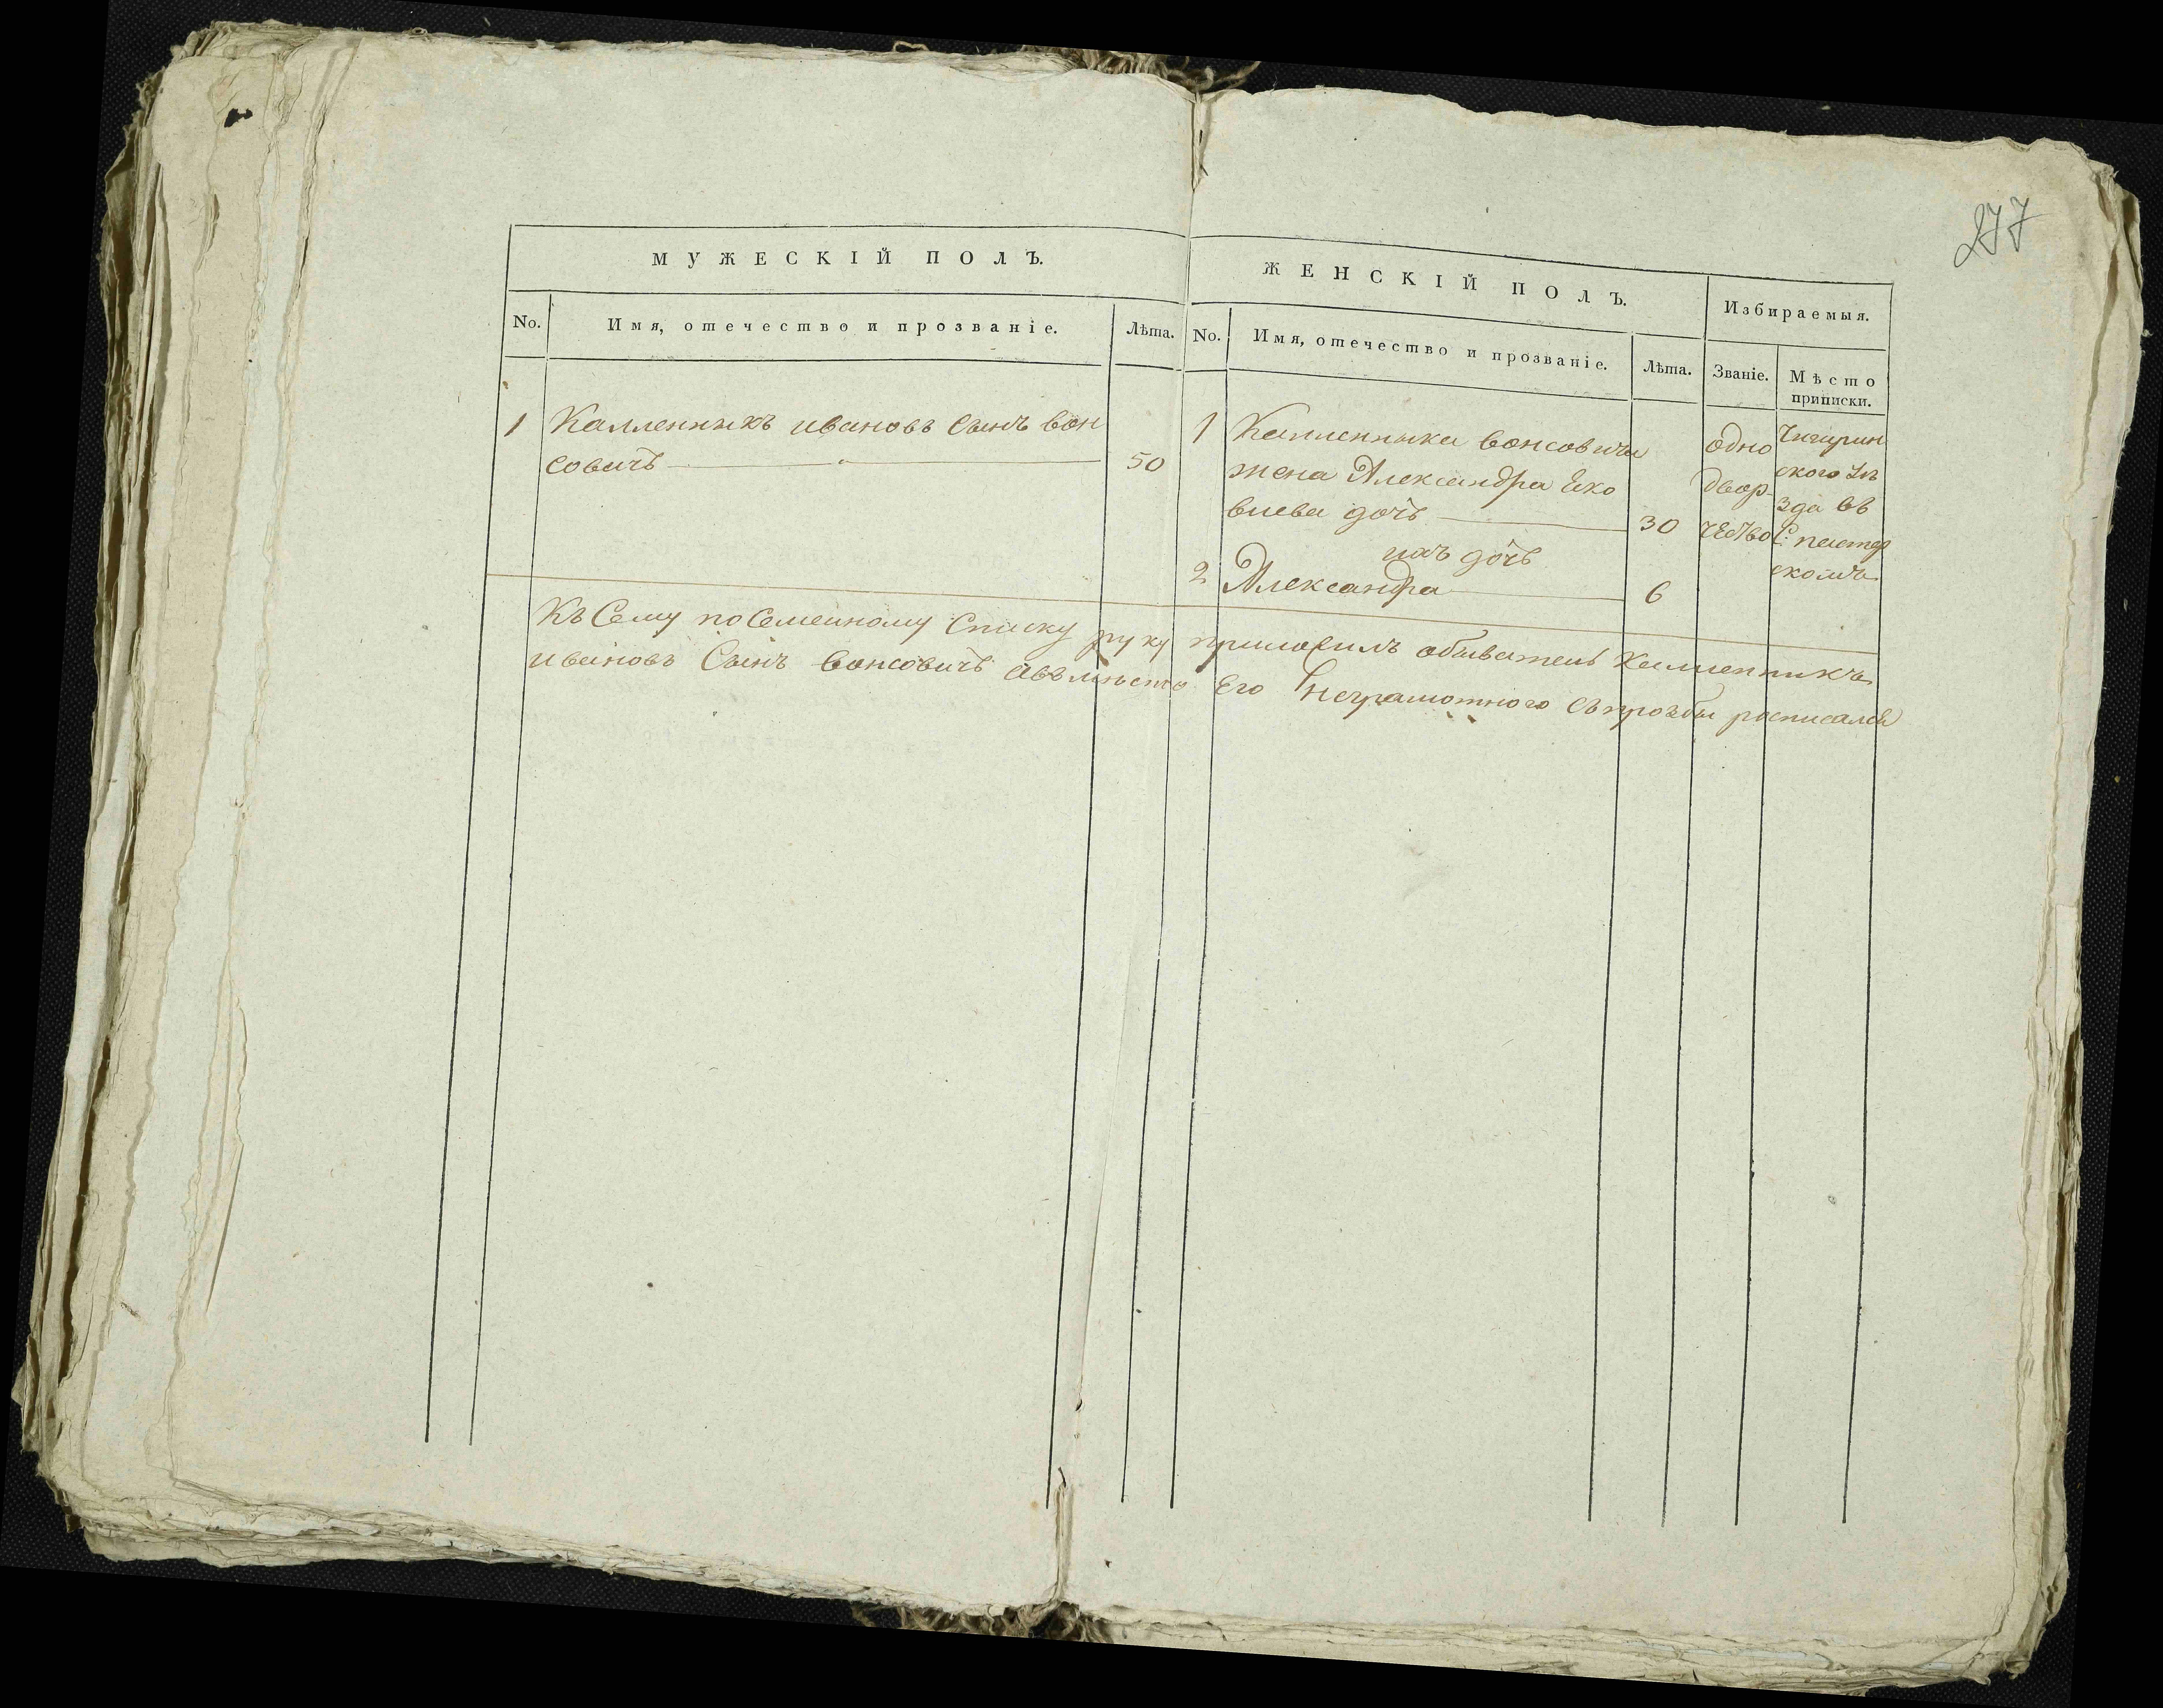 277
МУЖЕСКІЙ ПОЛЪ.
ЖЕНСКІЙ ПОЛЪ.
Избираемыя.
No.
Имя, отечество и прозваніе.
Лѣта.
No.
Имя, отечество и прозваніе.
Лѣта.
Званіе.
Мѣсто
приписки.
1 Калленникъ ивановъ Сынъ вон
совичъ 50
1 Калленника вонсовича
жена Александра Яко
влева дочъ 30
ихъ дочъ
2 Александра 6
одно
двор-
чество
Чигирин
ского Уѣ
зда въ
С: пастер
скомъ
Къ Сему посемейному Списку руку приложилъ обыватель Калленникъ
ивановъ Сынъ вонсовичъ авъмѣсто Его неграмотного съпрозбы росписался